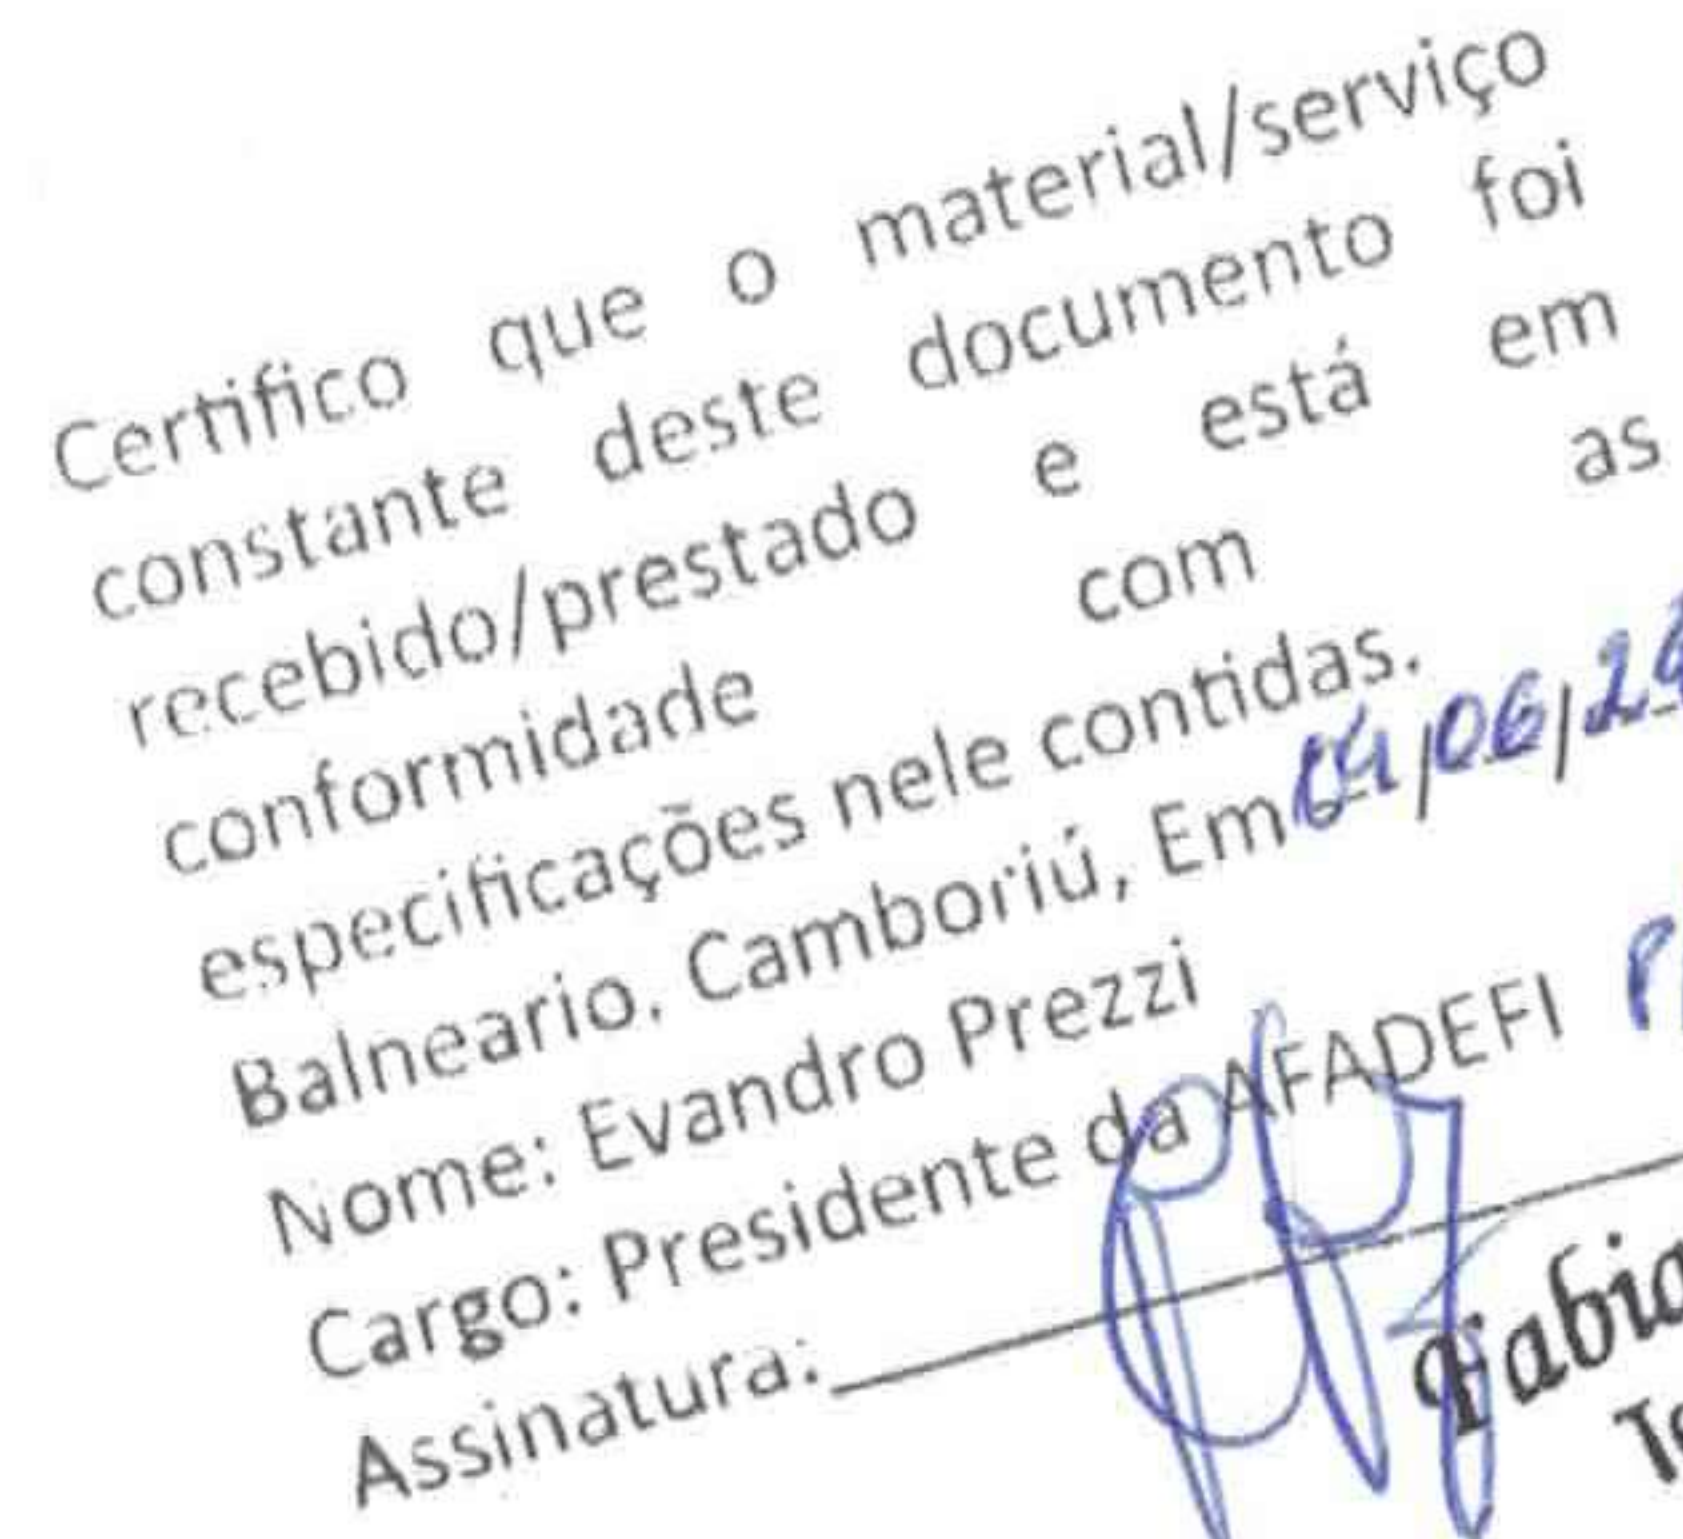 Certifico que o material/serviço
constante deste documento foi
recebido/prestado e está em
conformidade com as
especificações nele contidas.
Balneario. Camboriú, Em 04/06/24
Nome: Evandro Prezzi
Cargo: Presidente da AFADEFI
Assinatura: